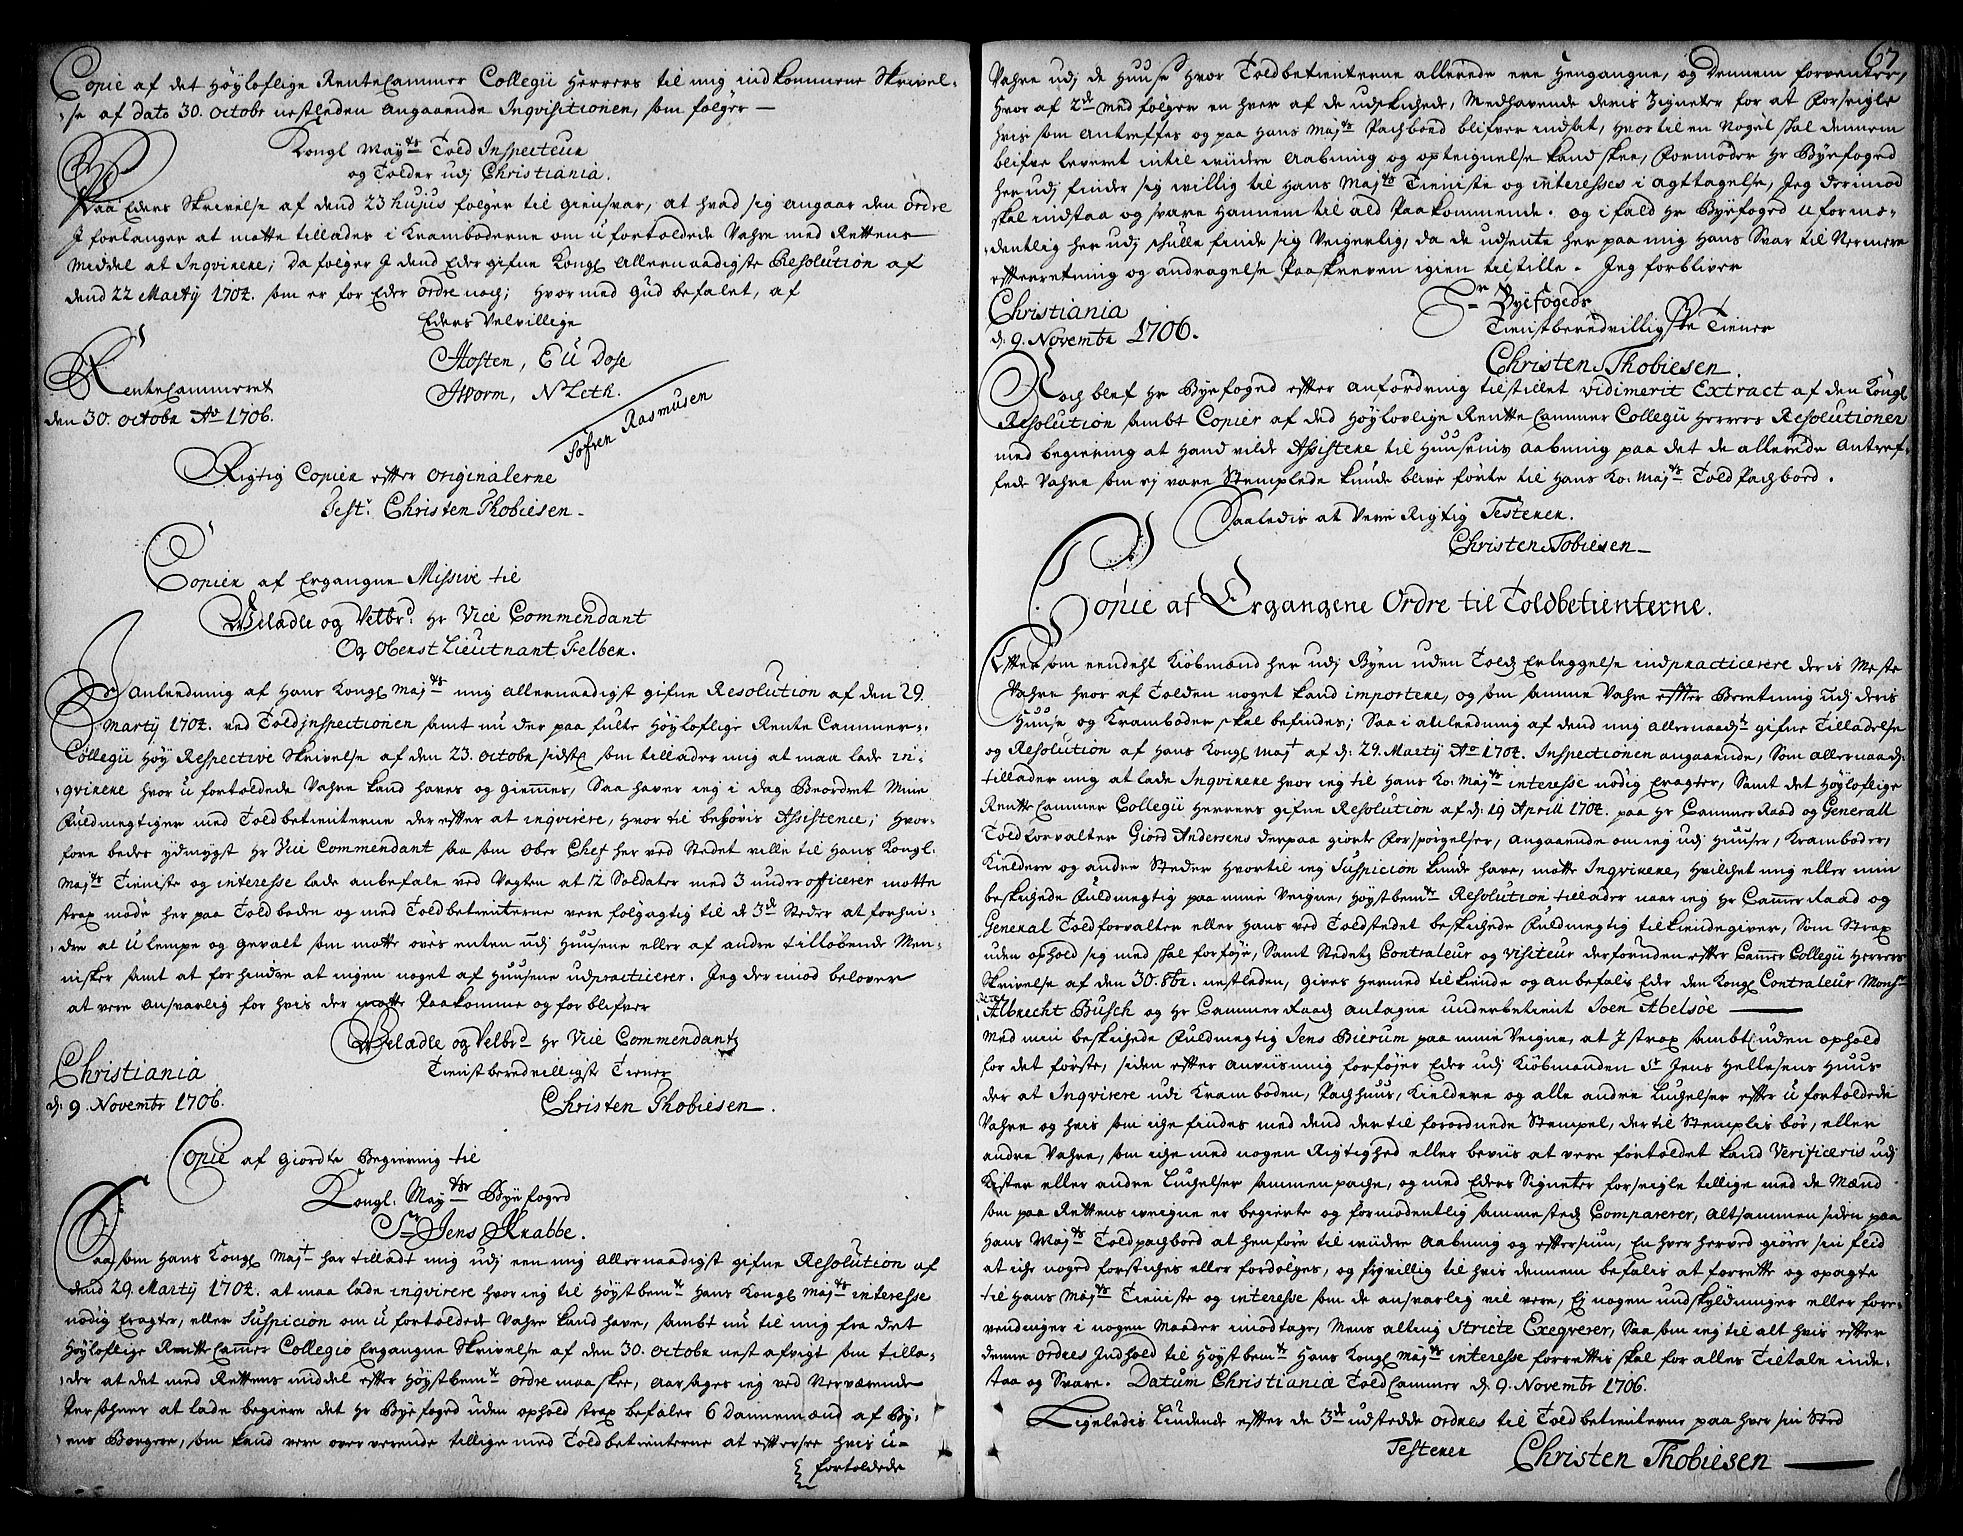 Copie af det Høyloflige RenteCammer Collegii Herrers til mig indkommene Skrivel-
se af dato 30. octobr nestleden angaaende Inqvisitionen, som følger
Kongl Mayts Told Inspecteur
og Tolder udj Christiania.
Paa Eders Skrivelse af dend 23 hujus følger til giensvar, at hvad sig angaar den ordre
J forlanger at motte tillades i Kramboderne om ufortoldede Vahre med Rettens
Middel at Inqvirere; Da følger J dend Eder gifne Kongl allernaadigste Resolution af
dend 22 Martij 1704. som er for Eder ordre nock; hvormed Gud befalet, af
Eders Velvillige
Hosten, E U Dose
Worm, N Leth.
RenteCammeret
den 30. octobr Ao 1706.
Søfren Rasmusen
Rigtig Copien efter originalerne
Test: Christen Thobiesen
Copien af Ergangne Missive til
Velædle og Velbrd. Hr Vice Commendant
Og Oberst Lieutnant Felber.
anleedning af Hans Kongl Majts mig allernaadigst gifne Resolution af den 29.
Martij 1704. ved Toldjnspectionen samt nu der paa fulte Høyloflige Rente Cammer-
Collegii Høy Respective Skrivelse af den 23. octobr sidste som tillader mig at maa lade in-
qvirere hvor ufortoldede Vahre kand haves og giemmes, Saa haver jeg i dag Beordret Mine
Fuldmegtiger med Toldbetienterne der effter at inqvirere, hvor til behøvis Assistence; hvor-
fore bedes ydmygst Hr Vice Commendant saa som Ober Chef her ved Stedet ville til Hans Kongl.
Majts Tieniste og interesse lade anbefale ved Vagten at 12 Soldater med 3 underofficerer motte
strax møde her paa Toldboden og med Toldbetienterne vere følgagtig til de 3de Steder at forhin-
dre al Ulempe og gevalt som motte øves enten udj Huusene eller af andre tilløbende Men-
nisker samt at forhindre at ingen noget af Huusene udpracticerer. Jeg der imod belover
at vere ansvarlig for hvis der motte Paakomme og forblifver
Velædle og Velbrd Hr Vice Commendantz
Tienstberedvilligste Tiener
Christiania
d. 9. Novembr 1706.
Christen Thobiesen.
Copie af giordte Begiering til
Kongl. Mayts Byefoged
Sr Jens Knabbe.
Saasom Hans Kongl Majt har tilladt mig udj een mig allernaadigst gifne Resolution af
dend 29. Martij 1704. at maa lade inqvirere hvor jeg til Høystbemte Hans Kongl Majts interesse
nødig Eragter, eller Suspicion om ufortoldede Vahre kand have, sambt nu til mig fra det
Høyloflige RentteCammer Collegio Ergangne Skrivelse af den 30. octobr nest afvigt som tilla-
der at det med Rettens middel effter Høystbemte ordre maa skee, aarsages jeg ved Nerværende
Persohner at lade begiere det Hr Byefoged uden ophold strax befaler 6 Dannemænd af By-
ens Borgere, som kand vere oververende tillige med Toldbetienterne at effterse hvis u-
fortoldede
67
Vahre udj de Huuse hvor Toldbetienterne allerede ere Hengangne, og dennem forventer,
hvor af 2de med følger en hver af de udskickede, Medhavende deris Zigneter for at forseigle
hvis som antreffes og paa Hans Majts Packboed blifver indsat, hvortil en Nøgel skal dennem
blifve leveret intil widre aabning og opteignelse kand skee, formoder Hr Byefoged
her udj finder sig willig til Hans Majts Tieniste og interesses i agttagelse, Jeg derimod
skal indstaa og svare Hannem til ald Paakommende. og i fald Hr Byefoged uformo-
dentlig her udj skulle finde sig Veigerlig, da de udsente her paa mig Hans Svar til Nermere
effterretning og andragelse Paaskreven igien tilstille. Jeg forbliver
Hr Byefogeds
Tienstberedvilligste Tiener
Christiania
d. 9. Novembr 1706.
Christen Thobiesen.
Noch blef Hr Byefoged effter anfordring tilstillet vidimerit Extract af den Kongl
Resolution sambt Copier af ded Høylovlige RentteCammer Collegii Herrers Resolutioner
med begiering at Hand vilde Assistere til Huusenis aabning paa det de allerede Antref-
fede Vahre som ej vare Stemplede kunde blive førte til Hans Ko. Majts Told Packboed.
Saaledis at Vere Rigtig Testerer.
Christen Tobiesen
Copie af Ergangene Ordre til Toldbetienterne.
Effter som eendehl Kiøbmænd her udj Byen uden Told Erleggelse indpracticerere deris Meste
Vahre hvor af Tolden noget kand importere, og som samme Vahre effter Beretning udj deris
Huuse og Kramboder skal befindes; Saa i anleedning af dend mig allernaadst gifne Tilladelse
og Resolution af Hans Kongl Majt af d. 29. Martij Ao 1704. Inspectionen angaaende, Som allernaadst
tillader mig at lade Inqvirere hvor jeg til Hans Ko. Majts interesse nødig Eragter, Samt det Høyloflige
RentteCammer Collegii Herrers gifne Resolution af d. 19 Aprill 1704. paa Hr Cammer Raad og Generall
Toldforvalter Giord Andersens derpaa giorte forspørgelser, angaaende om jeg udj Huuser, Kramboder,
Kieldere og andre Steder hvortil jeg Suspicion kunde have, motte Inqvirere, hvilchet mig eller min
beskickede Fuldmegtig paa mine Veigne, Høystbemte Resolution tillader naar jeg Hr Cammer Raad og
General Toldforvalter eller Hans ved Toldstedet beskickede Fuldmegtig tilkiendegiver, Som Strax
uden ophold sig med skal forføje, Samt Stedets Contraleur og Visiteur derforuden effter Cammer Collegii Herrers
Skrivelse af den 30. 8br. nestleden, gives Hermed tilkiende og anbefalis Eder den Kongl Contraleur Monsr
Albrecht Busch og Hr Cammer Raads antagne underbetient Joen Abelsøe
Med min beskickede Fuldmegtig Jens Bierum paa mine Veigne, at J strax sambtl uden ophold
for det første, siden effter anviisning forføjer Eder udj Kiøbmanden Sr Jens Hellesens Huus
der at Inqvirere udi Kramboden, Packhuus, Kieldere og alle andre Luckelser effter ufortoldede
Vahre og hvis som icke findes med dend der til forordnede Stempel, der til Stemplis bør, eller
andre Vahre, som icke med nogen Rigtighed eller beviis at vere fortoldet kand Verificeris udj
Kister eller andre Luckelser sammenpacke, og med Eders Signeter forseigle tillige med de Mænd
som paa Rettens weigne er begierte og formodentlig sammesteds Comparerer, altsammen siden paa
Hans Majts Toldpackboed at henføre til widere aabning og effterseün, En hver herved giører sin Eed
at icke noged forstickes eller fordølges, og frjvillig til hvis dennem befalis at forrette og opagte
til Hans Majts Tieniste og interesse som de ansvarlig vil vere, Ej nogen undskyldninger eller fore-
vendinger i nogen Maader imodtage, Mens alting Stricte Exeqverer, Saa som jeg til alt hvis effter
denne ordres Indhold til Høystbemte Hans Kongl Majts interesse forrettis skal for alles Tiltale inde-
staa og Svare. Datum Christianiæ ToldCammer d. 9. Novembr 1706.
Ligeledis Liudende effter de 3de udstedde ordres til Toldbetienterne paa hver sin Sted
Testerer Christen Thobiesen